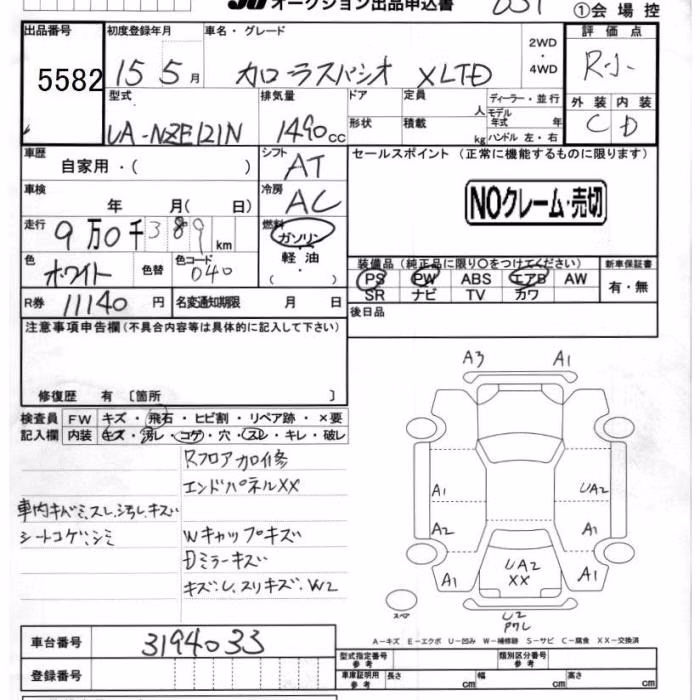 オークション出品申込書
①会場控
出品番号 初度登録年月 車名・グレード 2WD・4WD 評価点
5582 15 5月 カローラスパシオ XLTD R-小
型式 排気量 ドア 定員 人 ディーラー・並行 外装 内装
UA-NZE121N 1490cc 形状 積載 kg モデル年式 年 ハンドル 左・右 C D
車歴 自家用・( ) シフト AT セールスポイント (正常に機能するものに限ります)
車検 年 月( 日) 冷房 AC
NOクレーム・売切
走行 9万0千389km 燃料 ガソリン 軽油・( )
色 ホワイト 色替 色コード 040
装備品 (純正品に限り○をつけてください) 新車保証書
PS PW ABS エアB AW 有・無
SR ナビ TV カワ
R券 11140円 名変通知期限 月 日 後日品
注意事項申告欄 (不具合内容等は具体的に記入して下さい)
修復歴 有 [箇所 ]
検査員 FW キズ・飛石・ヒビ割・リペア跡・×要
記入欄 内装 キズ・汚レ・コゲ・穴・スレ・キレ・破レ
Rフロア加修
エンドパネルXX
車内キバミ、スレ、汚レ、キズ
シートコゲ、シミ
Wキャップキズ
Dミラーキズ
キズ・U、スリキズ・W2
A3 A1
A1 UA2
A2 A1
A1 UA2 XX A1
スペア U2
A-キズ E-エクボ U-凹み W-補修跡 S-サビ C-腐食 XX-交換済
車台番号 3194033
登録番号
型式指定番号 参考 類別区分番号 参考
車庫証明用 参考 長さ cm 幅 cm 高さ cm